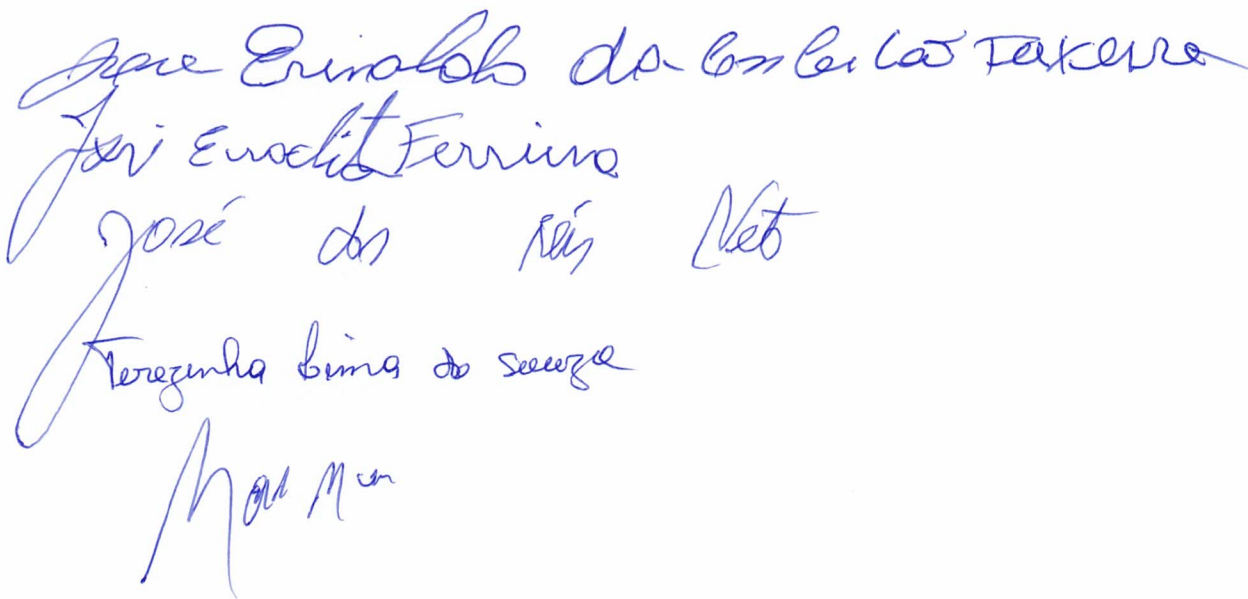 Jose Erinaldo da Conceicão Teixeira
José Ferreira
José dos Reis Neto
Terezinha Lima de Souza